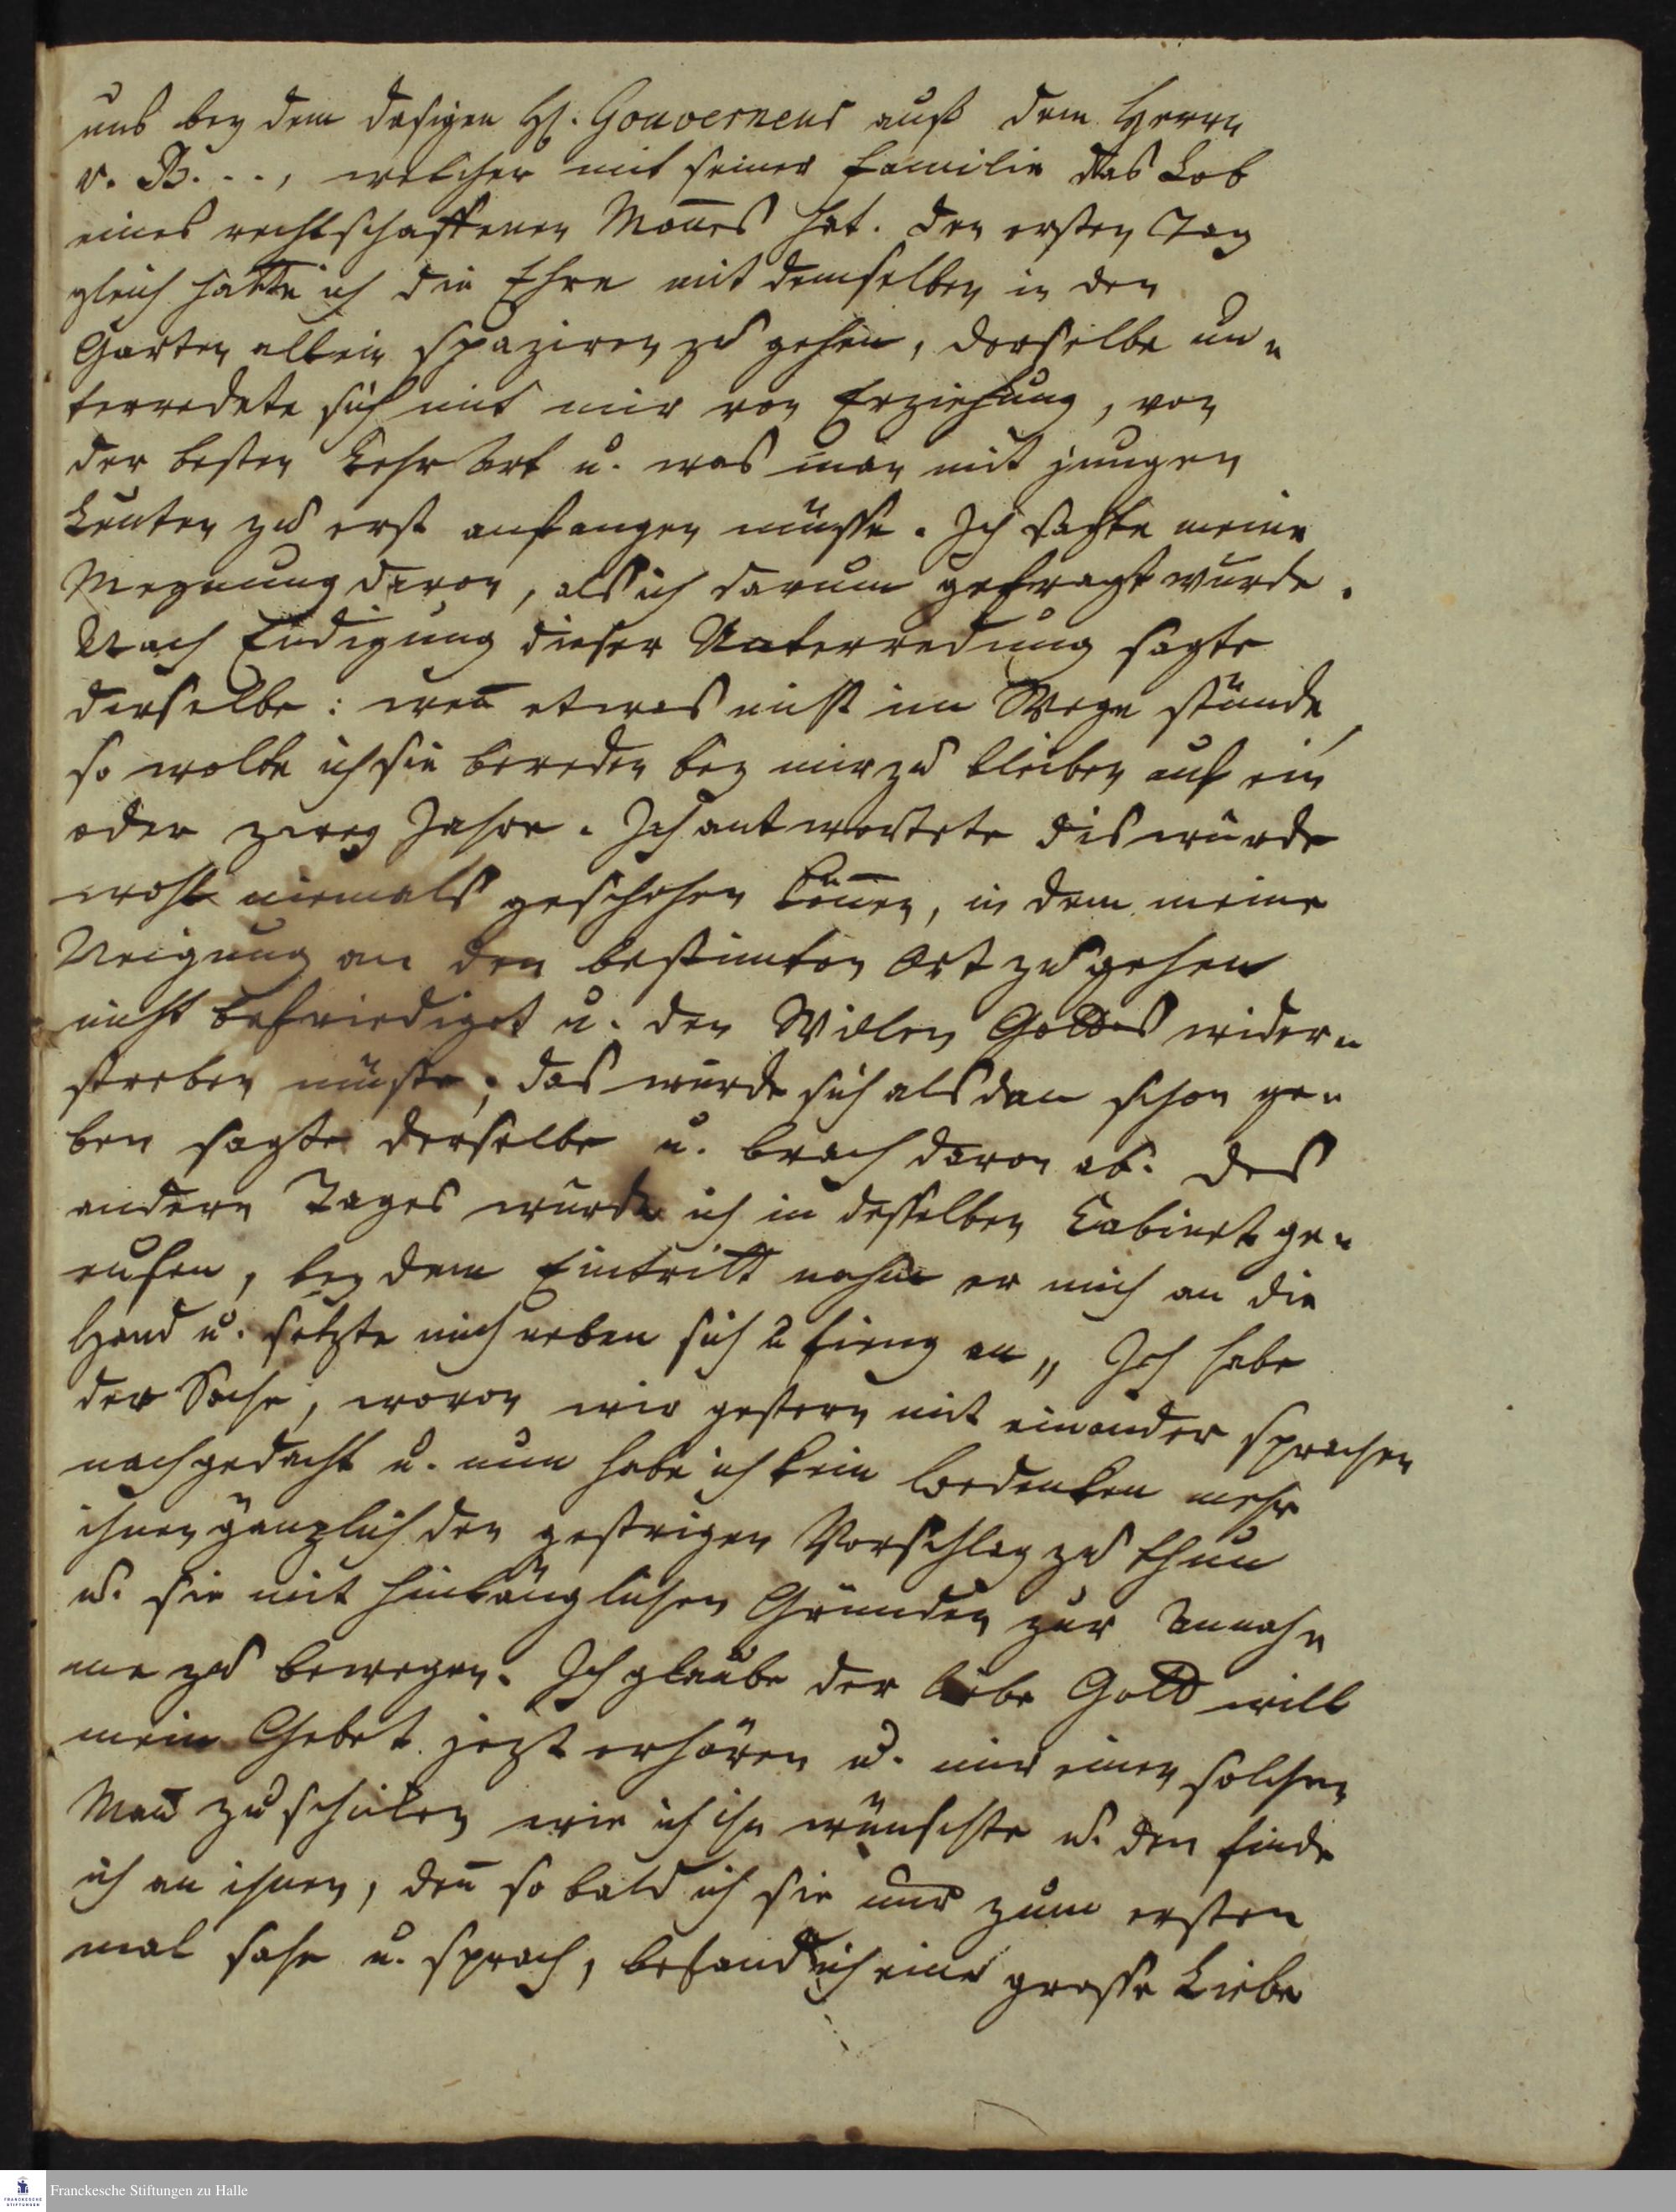 uns bey dem dasigen H. Gouverneur auß dem Herrn
v. B..., welcher mit seiner Familie das Lob
eines rechtschaffenen Mañes hat. Den ersten Tag
gleich hatte ich die Ehre mit demselben in den
Garten allein spaziren zu gehen, derselbe un-
terredete sich mit mir von Erziehung, von
der besten Lehr Art u. was man mit jungen
Leuten zu erst anfangen müsse. Ich sagte meine
Meynung davon, als ich darum gefragt wurde.
Nach Endigung dieser Unterredung sagte
derselbe: weñ etwas nicht im Wege stünde,
so wolte ich sie bereden bey mir zu bleiben auf ein
oder zwey Jahre. Ich antwortete dis würde
wohl niemals geschehen köñen, in dem meine
Neigung an den bestimten Ort zu gehen
nicht befriediget u. den Willen Gottes wider-
streben müste; das würde sich als dan schon ge-
ben sagte derselbe u. brach davon ab. Des
andern Tages wurde ich in desselben Cabinet ge-
rufen, bey dem Eintritt nahm er mich an die
Hand u. setzte mich neben sich u fieng an „ Ich habe
der Sache, wovon wir gestern mit einander sprachen
nachgedacht u. nun habe ich kein Bedenken mehr
ihnen gänzlich den gestrigen Vorschlag zu thun
u. sie mit hinlänglichen Gründen zur Annah-
me zu bewegen. Ich glaube der liebe Gott will
mein Gebet jezt erhören u. mir einen solchen
Mañ zu schicken wie ich ihn wünschte u. den finde
ich an ihnen, deñ so bald ich sie nur zum ersten
mal sahe u. sprach, befand ich eine grosse Liebe
FRANCKESCHE STIFTUNGEN
Franckesche Stiftungen zu Halle